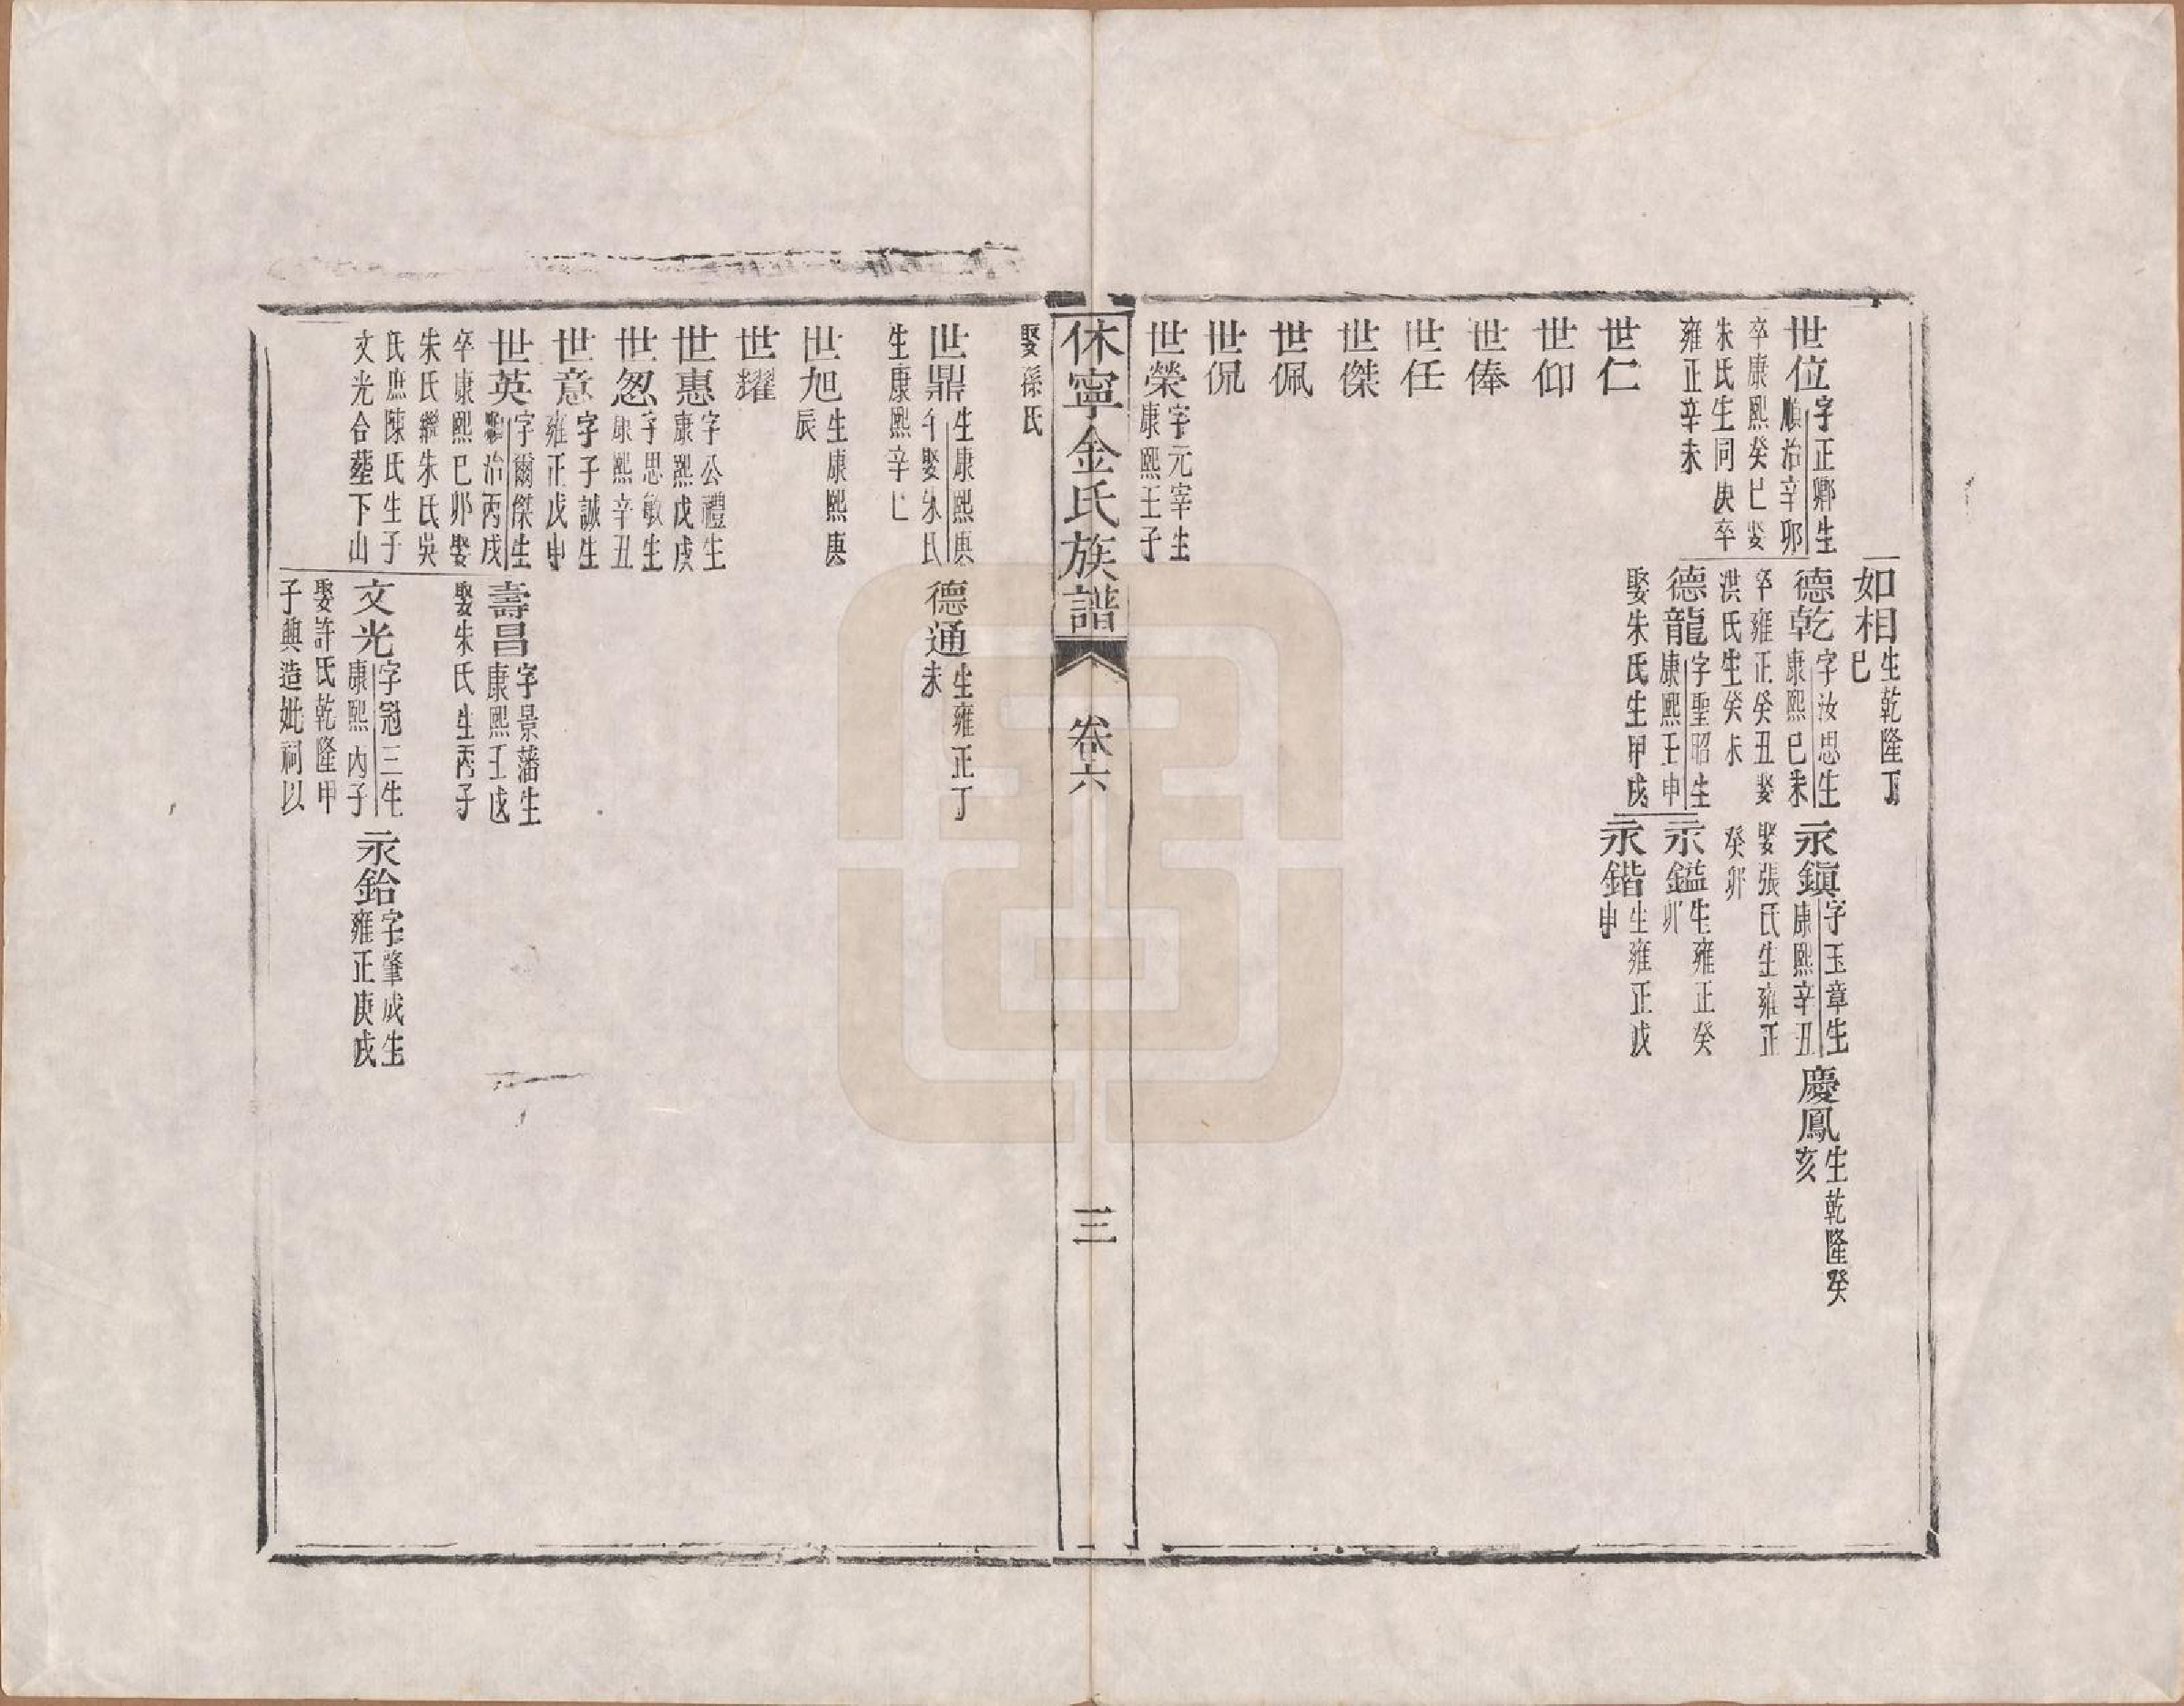 如相生乾隆丁
巳
世位字正卿生
順治辛卯
卒康熙癸巳娶
朱氏生同庚卒
雍正辛未
德乾字汝思生
康熙己未
卒雍正癸丑娶
洪氏生癸未
永鎮字玉章生
康熙辛丑
娶張氏生雍正
癸卯
慶鳳生乾隆癸
亥
德龍字聖昭生
康熙壬申
娶朱氏生甲戌
永鎰生雍正癸
卯
永鍇生雍正戊
申
世仁
世仰
世俸
世任
世傑
世佩
世侃
世榮字元宰生
康熙壬子
休寧金氏族譜
卷六
三
娶孫氏
世鼎生康熙庚
午娶朱氏
生康熙辛巳
德通生雍正丁
未
世旭生康熙庚
辰
世耀
世惠字公禮生
康熙戊戌
世怱字思敏生
康熙辛丑
世意字子誠生
雍正戊申
世英字爾傑生
順治丙戌
卒康熙己卯娶
朱氏繼朱氏吳
氏庶陳氏生子
文光合塟下山
壽昌字景藩生
康熙壬戌
娶朱氏生丙子
文光字冠三生
康熙丙子
娶許氏乾隆甲
子興造妣祠以
永鈶字肇成生
雍正庚戌